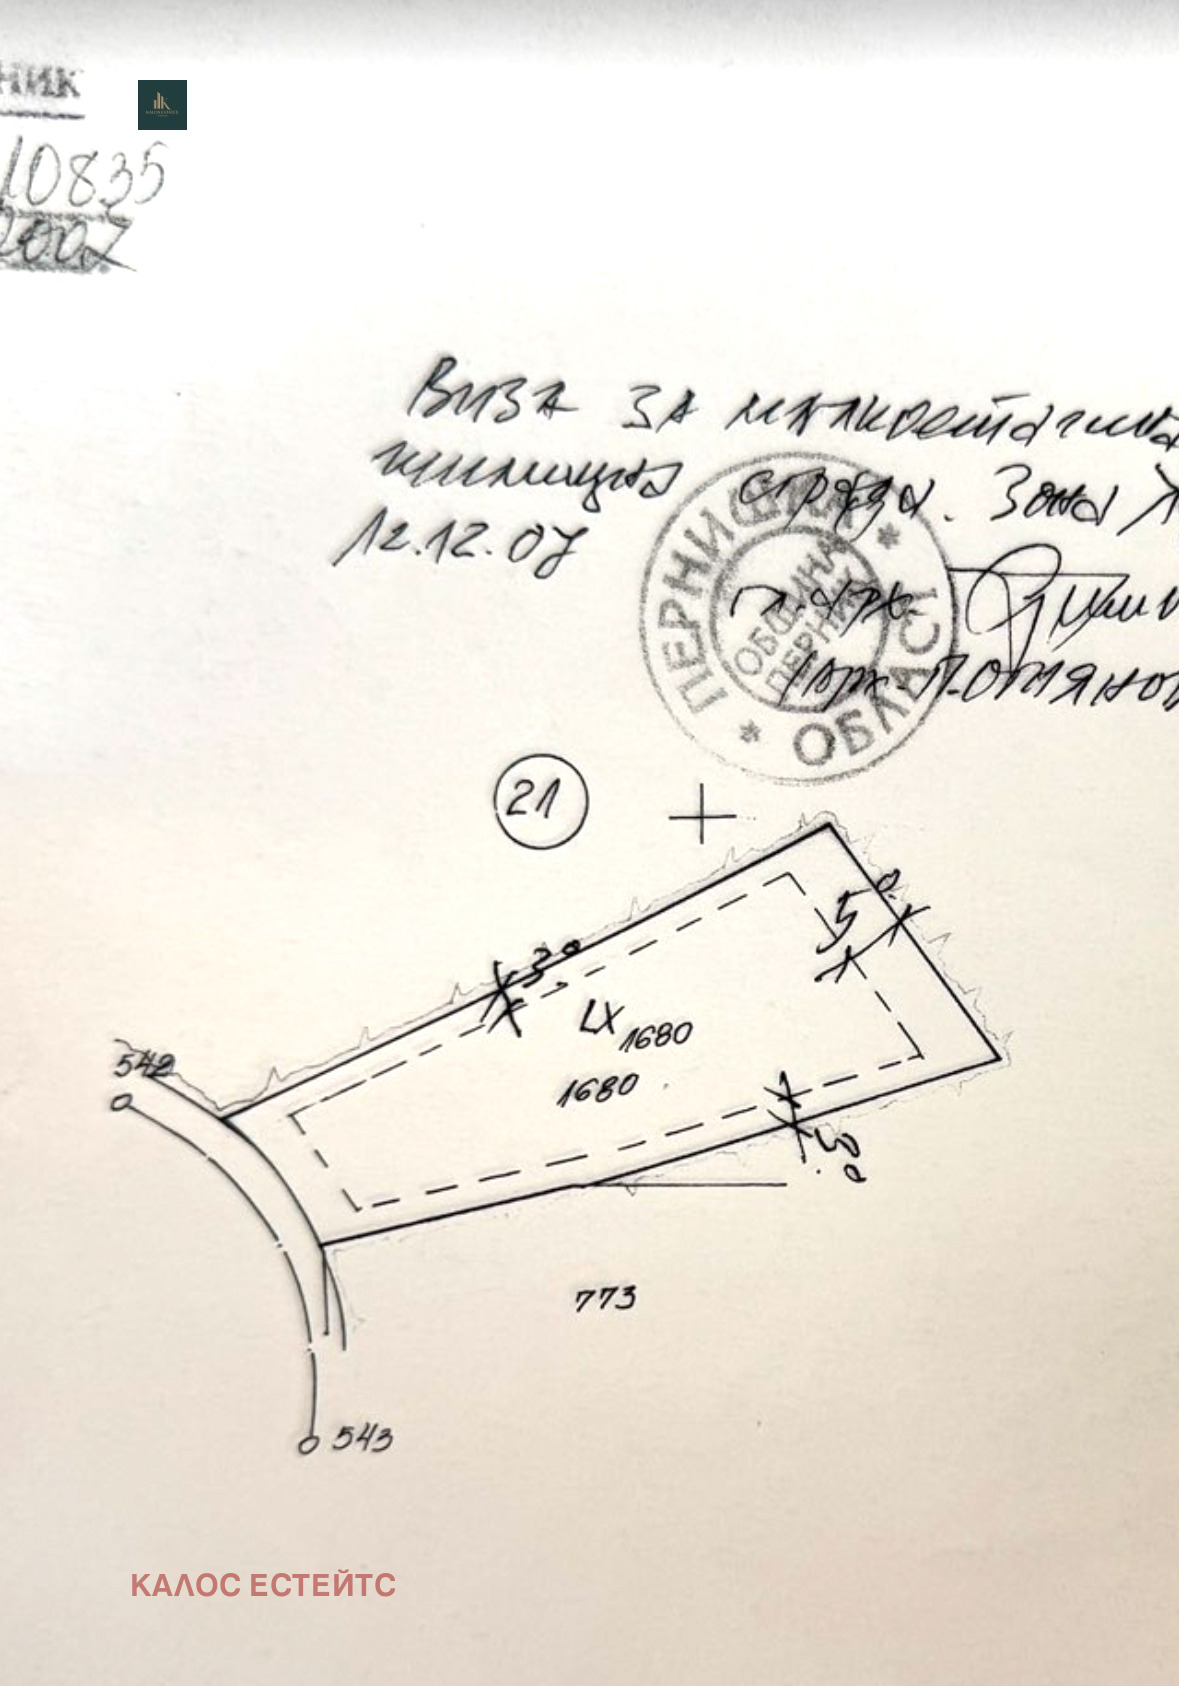 НИК
10835
2007
ВИЗА ЗА малкоетажна
жилищна сграда. Зона Ж
12.12.07
гл. арх.
/арх. П.
ПЕРНИШКА ОБЛАСТ
ОБЩИНА
ПЕРНИК
21
5°
3°
LX 1680
1680
542
3°
773
543
КАЛОС ЕСТЕЙТС